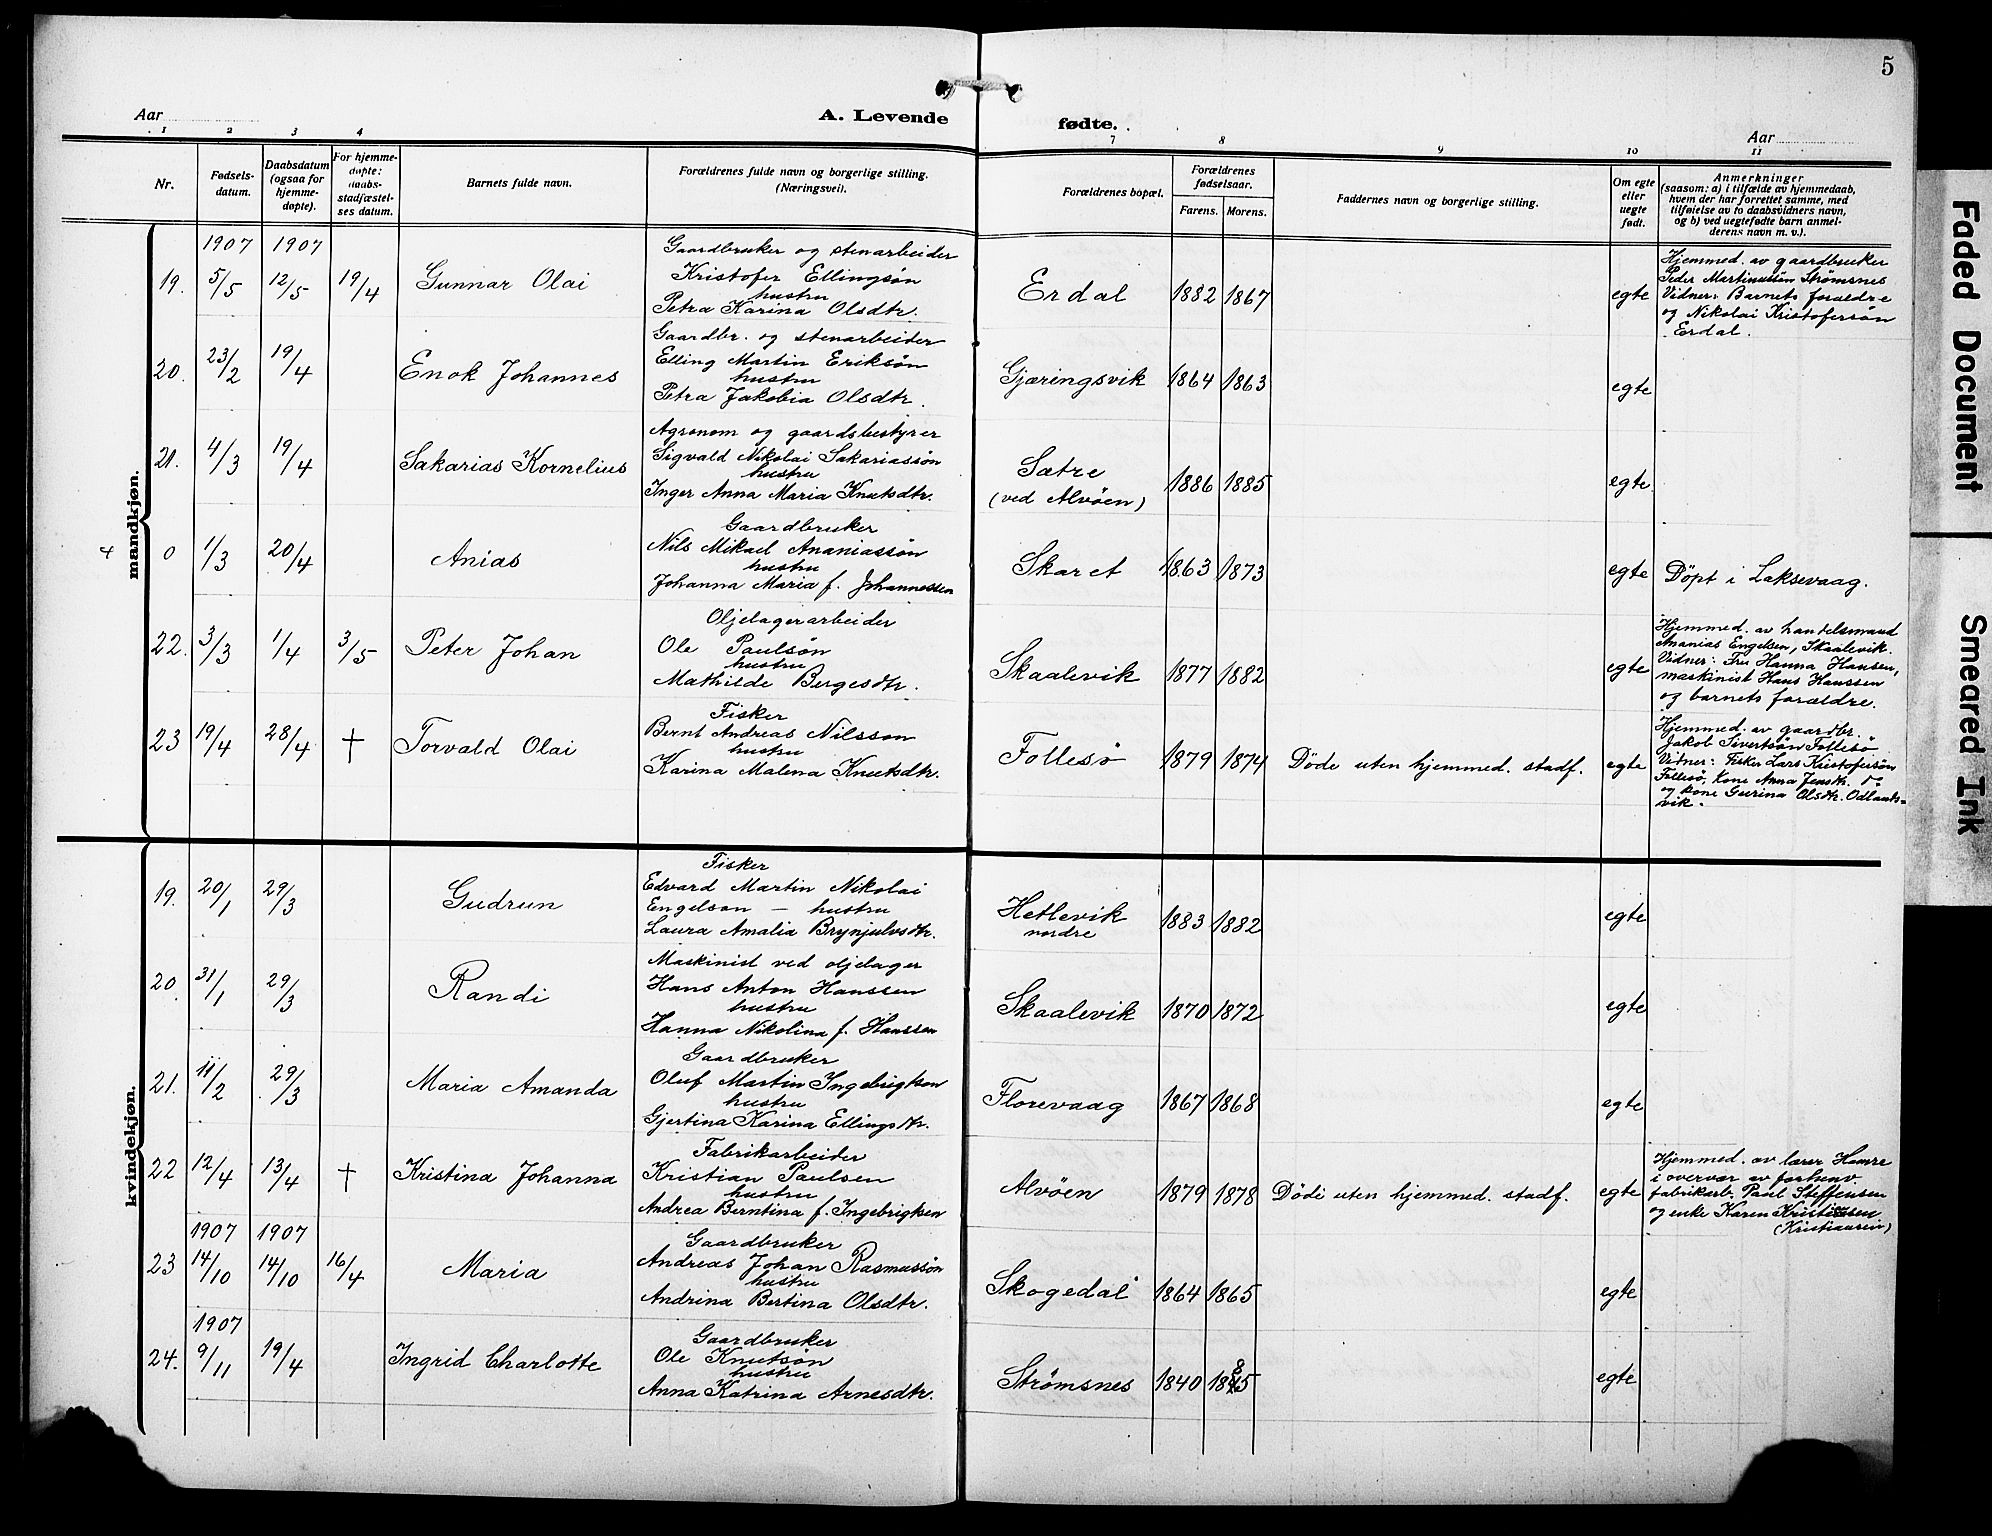 5
Aar
A. Levende fødte.
Aar
1 2 3 4 7 8 9 10 11
Nr.
Fødsels-
datum.
Daabsdatum
(ogsaa for
hjemme-
døpte).
For hjemme-
døpte:
daabs-
stadfæstel-
ses datum.
Barnets fulde navn.
Forældrenes fulde navn og borgerlige stilling.
(Næringsvei).
Forældrenes bopæl.
Forældrenes
fødselsaar.
Farens. Morens.
Faddernes navn og borgerlige stilling.
Om egte
eller
uegte
født.
Anmerkninger
(saasom: a) i tilfælde av hjemmedaab,
hvem der har forrettet samme, med
tilføielse av to daabsvidners navn,
og b) ved uegtefødte barn anmel-
derens navn m. v.).
mandkjøn.
1907 1907
19. 5/5 12/5 19/4 Gunnar Olai
Gaardbruker og stenarbeider
Kristofer Ellingsøn
hustru
Petra Karina Olsdtr.
Erdal 1882 1867 egte
Hjemmed. av gaardbruker
Peder Martinussøn Strømsnes
Vidner: Barnets forældre
og Nikolai Kristofersøn
Erdal.
20. 23/2 19/4 Enok Johannes
Gaardbr. og stenarbeider
Elling Martin Eriksøn
hustru
Petra Jakobia Olsdtr.
Gjæringsvik 1864 1863 egte
21. 4/3 19/4 Sakarias Kornelius
Agronom og gaardsbestyrer
Sigvald Nikolai Sakariassøn
hustru
Inger Anna Maria Knutsdtr.
Sætre
(ved Alvöen) 1886 1885 egte
4 0 1/3 20/4 Anias
Gaardbruker
Nils Mikael Ananiassøn
hustru
Johanna Maria f. Johannessen
Skaret 1863 1873 egte Döpt i Laksevaag.
22. 3/3 1/4 3/5 Peter Johan
Oljelagerarbeider
Ole Paulsøn
hustru
Mathilde Bergesdtr.
Skaalevik 1877 1882 egte
Hjemmed. av handelsmand
Ananias Engelsen, Skaalevik.
Vidner: Fru Hanna Hansen,
maskinist Hans Hanssen
og barnets forældre.
23 19/4 28/4 † Torvald Olai
Fisker
Bernt Andreas Nilsson
hustru
Karina Malena Knutsdtr.
Follesö 1879 1874 Döde uten hjemmed. stadf. egte
Hjemmed. av gaardbr.
Jakob Sivertsøn Follesö
Vidner: Fisker Lars Kristofersøn
Follesö, kone Anna Jensdtr. do
og kone Gurina Olsdtr. Odlands-
vik.
kvindekjøn.
19. 20/1 29/3 Gudrun
Fisker
Edvard Martin Nikolai
Engelson – hustru
Laura Amalia Brynjulvsdtr.
Hetlevik
nordre 1883 1882 egte
20. 31/1 29/3 Randi
Maskinist ved oljelager
Hans Anton Hanssen
hustru
Hanna Nikolina f. Hanssen
Skaalevik 1870 1872 egte
21. 11/2 29/3 Maria Amanda
Gaardbruker
Oluf Martin Ingebrigtsen
hustru
Gjertina Karina Ellingsdtr.
Florevaag 1867 1868 egte
22 12/4 13/4 † Kristina Johanna
Fabrikarbeider
Kristian Paulsen
hustru
Andrea Berntina f. Ingebrigtsen
Alvöen 1879 1878 Dödi uten hjemmed. stadf. egte
Hjemmed. av lærer Hamre
i overvær av forhenv.
fabrikarb. Paul Steffensen
og enke Karen Kristiansen
(Kristiansein)
1907 1907
23 14/10 14/10 16/4 Maria
Gaardbruker
Andreas Johan Rasmussøn
hustru
Andrina Bertina Olsdtr.
Skogedal 1864 1865 egte
1907
24. 9/11 19/4 Ingrid Charlotte
Gaardbruker
Ole Knutsøn
hustru
Anna Katrina Arnesdtr.
Strømsnes 1840 1865 egte
Faded Document
Smeared Ink